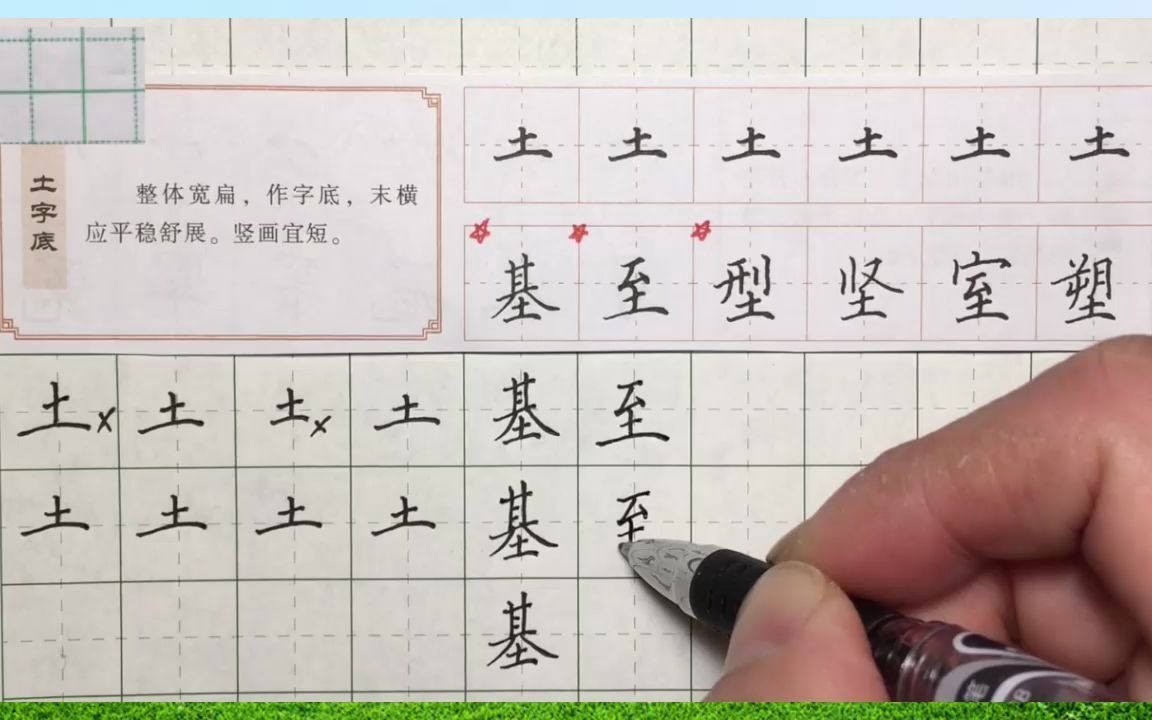 土字底
整体宽扁，作字底，末横
应平稳舒展。竖画宜短。
土 土 土 土 土 土
基 至 型 坚 室 塑
土 × 土 土 × 土 基 至
土 土 土 土 基 至
基